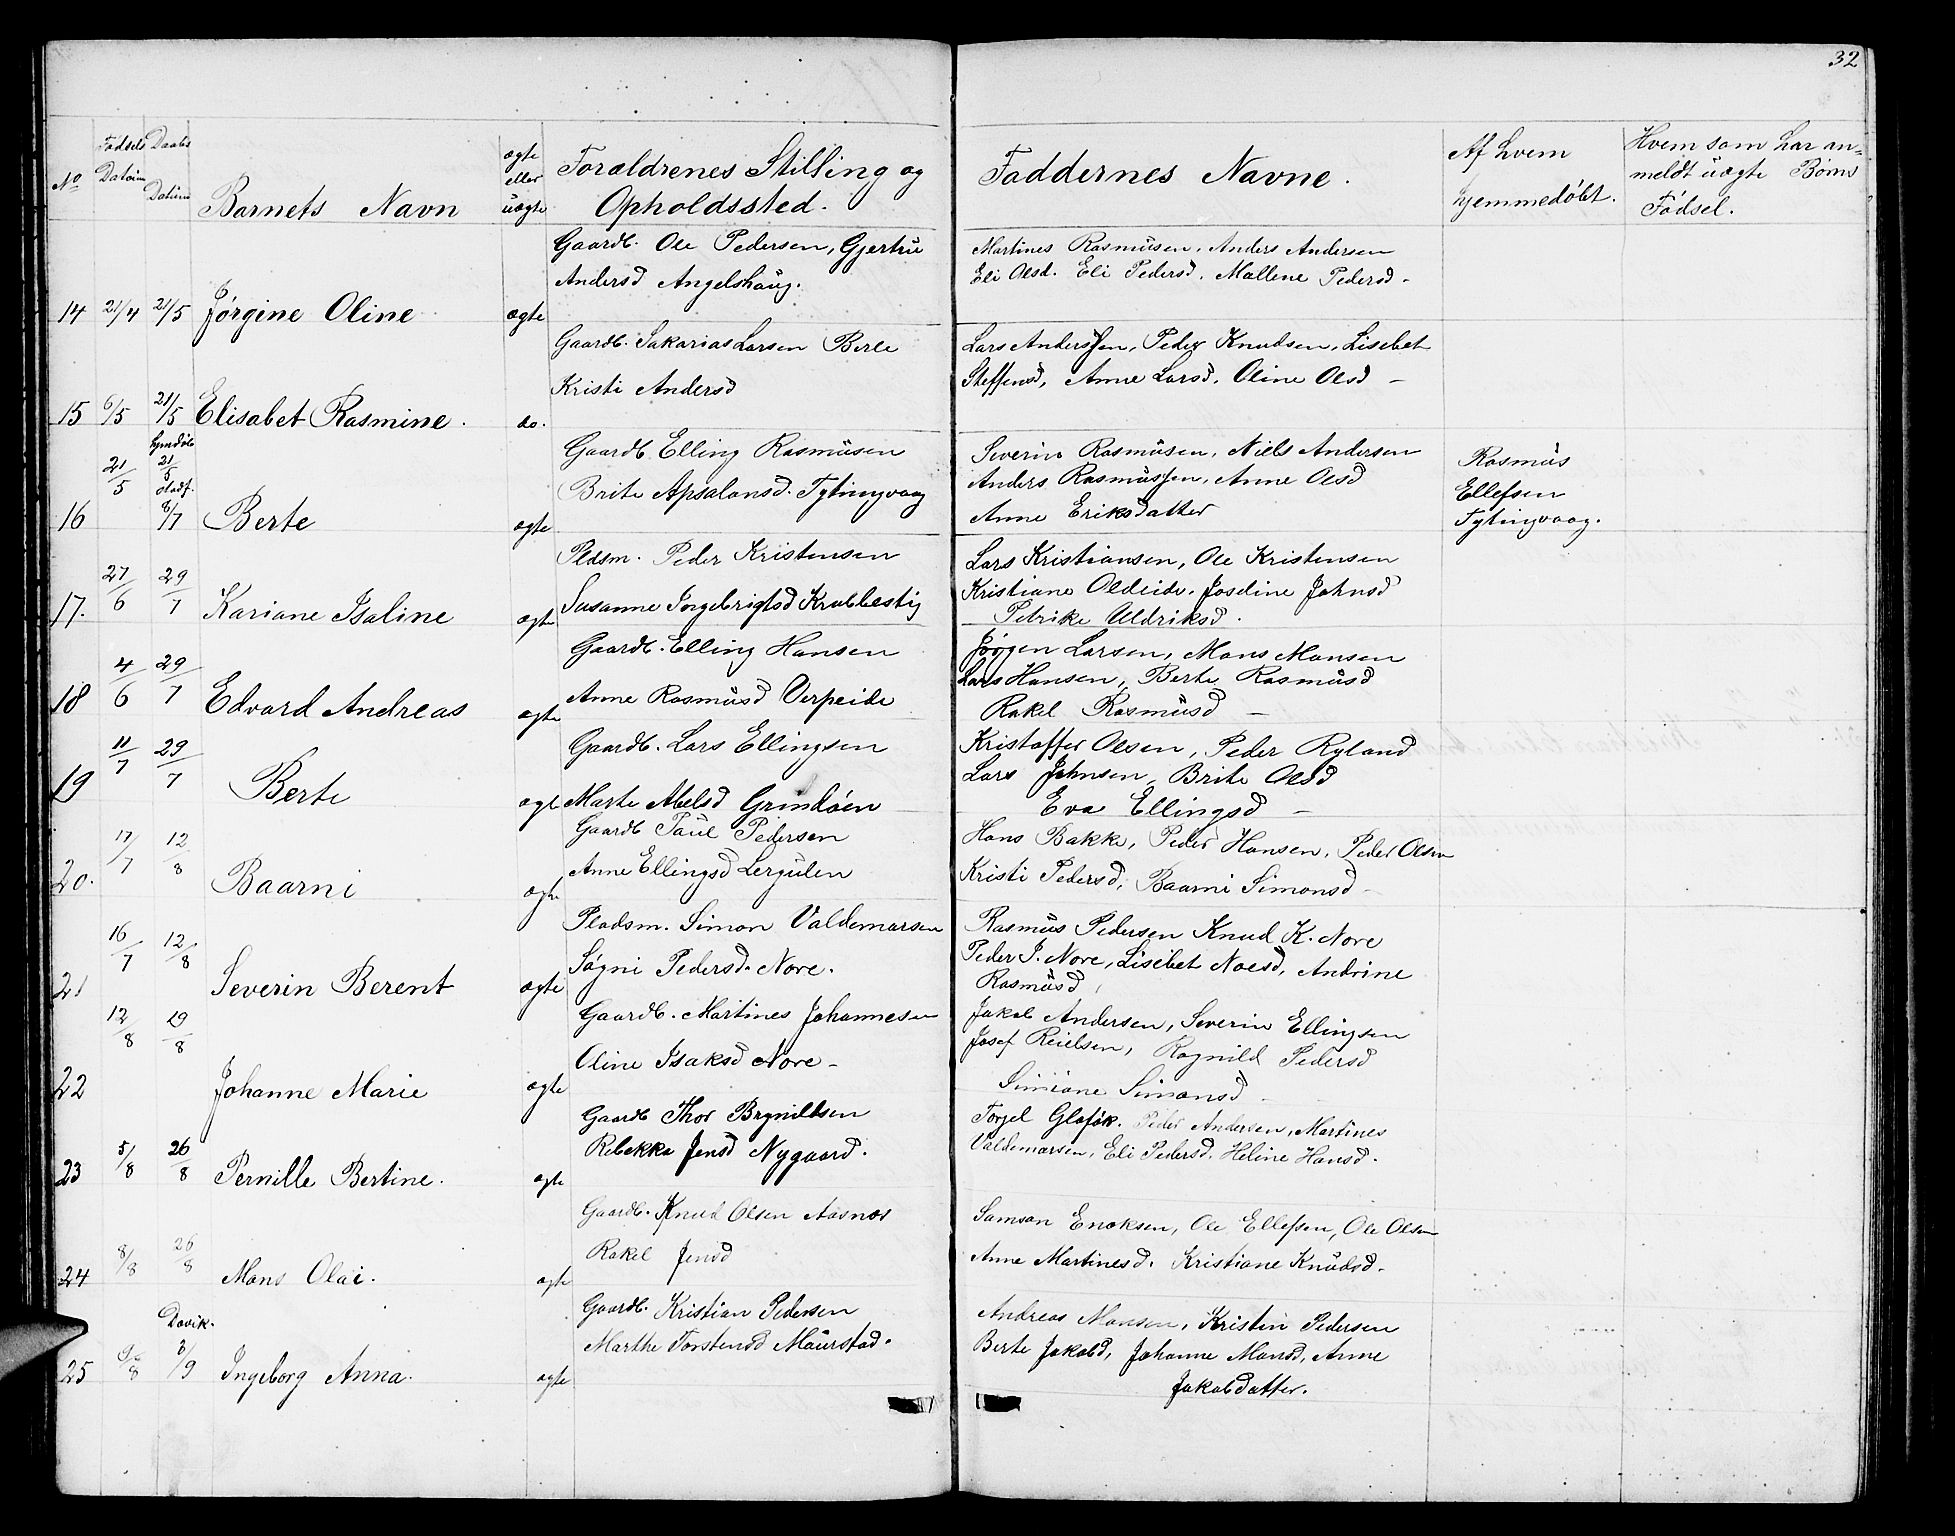 32
No
Fødsels Datum
Daabs Datum
Barnets Navn
ægte eller uægte
Forældrenes Stilling og
Opholdssted.
Faddernes Navne.
Af hvem
hjemmedøbt.
Hvem som har an=
meldt uægte Børns
Fødsel.
14 21/4 21/5 Jørgine Oline ægte
Gaardb. Ole Pedersen, Gjertru
Andersd Angelshaug.
Martines Rasmusen, Anders Andersen
Eli Olsd. Eli Pedersd. Mallene Pedersd -
15 6/5 21/5 Elisabet Rasmine. do.
Gaardb. Sakarias Larsen Berle
Kristi Andersd
Lars Anderssen, Peder Knudsen, Lisebet
Steffensd, Anne Larsd, Oline Olsd -
16 21/5 hjemdøb 21/5 stadf. 8/7 Berte ægte
Gaardb. Elling Rasmusen
Brite Apsalonsd. Tytingvaag
Severin Rasmusen, Niels Andersen
Anders Rasmussen, Anne Olsd
Anne Eriksdatter
Rasmus
Ellefsen
Tytingvaag.
17. 27/6 29/7 Kariane Isaline ægte
Pladsm. Peder Kristensen
Susanne Ingebrigtsd Krabbestig
Lars Kristiansen, Ole Kristensen
Kristiane Oldeide. Josefine Johnsd
Petrike Uldriksd.
18 4/6 29/7 Edvard Andreas ægte
Gaardb. Elling Hansen
Anne Rasmusd Verpeide
Jørgen Larsen, Mons Monsen
Lars Hansen, Berte Rasmusd
Rakel Rasmusd -
19 11/7 29/7 Berte ægte
Gaardb. Lars Ellingsen
Marte Abelsd Grindøen
Kristoffer Olsen, Peder Ryland
Lars Johnsen, Brite Olsd
Eva Ellingsd -
20. 17/7 12/8 Baarni ægte
Gaardb Paul Pedersen
Anne Ellingsd Lergulen
Hans Bakke, Peder Hansen, Peder Olsen
Kristi Pedersd, Baarni Simonsd -
21 16/7 12/8 Severin Berent ægte
Pladsm. Simon Valdemarsen
Søgni Pedersd. Nore.
Rasmus Pedersen Knud K. Nore
Peder J. Nore, Lisebet Noesd, Andrine
Rasmusd,
22 12/8 19/8 Johanne Marie ægte
Gaardb. Martines Johannesen
Oline Isaksd Nore -
Jakob Andersen, Severin Ellingsen
Josef Reielsen, Ragnild Pedersd
Simiane Simonsd -
23 5/8 26/8 Pernille Bertine. ægte
Gaardb Thor Brynildsen
Rebekka Jensd Nygaard.
Torgel Peder Andersen, Martines
Valdemarsen, Eli Pedersd. Heline Hansd.
24 8/8 26/8 Mons Olai. ægte
Gaardb. Knud Olsen Aasnæs
Rakel Jensd
Samson Enoksen, Ole Ellefsen, Ole Olsen
Anne Martinesd. Kristiane Knudsd -
25 Davik. 2/9 Ingeborg Anna. ægte
Gaardb. Kristian Pedersen
Marthe Torstensd Maurstad.
Andreas Monsen, Kristin Pedersen
Berte Jakobd, Johanne Monsd, Anne
Jakobsdatter.